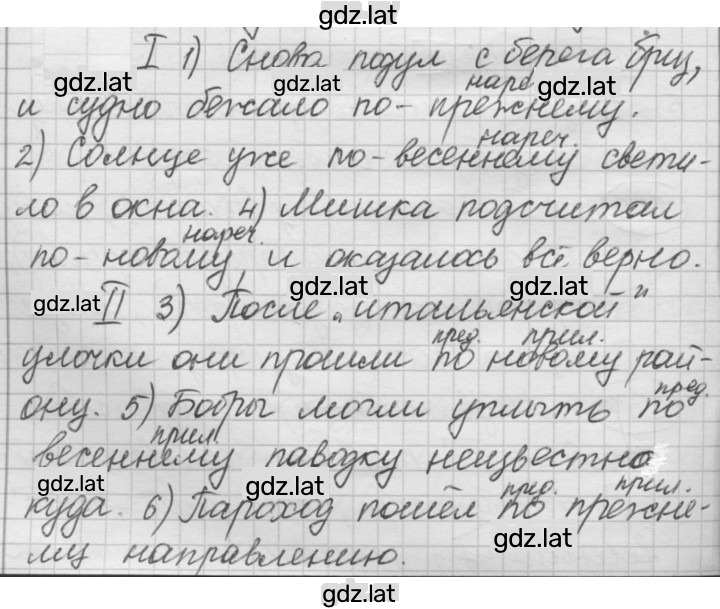 gdz.lat
I 1) Снова подул с берега бриз,
gdz.lat gdz.lat gdz.lat
нареч.
и судно бежало по-прежнему.
нареч.
2) Солнце уже по-весеннему свети-
ло в окна. 4) Мишка подсчитал
нареч.
по-новому, и оказалось всё верно.
gdz.lat gdz.lat gdz.lat
II 3) После „итальянской"
пред. прил.
улочки они прошли по новому рай-
пред.
ону. 5) Бобры могли уплыть по
прил.
весеннему паводку неизвестно
gdz.lat gdz.lat
пред. прил.
куда. 6) Пароход пошёл по прежне-
gdz.lat
му направлению.
gdz.lat